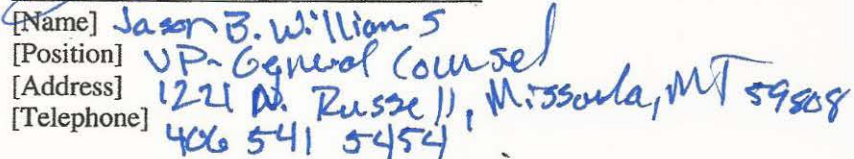 [Name] Jason B. Williams
[Position] VP-General Counsel
[Address] 1221 N. Russell, Missoula, MT 59808
[Telephone] 406 541 5454